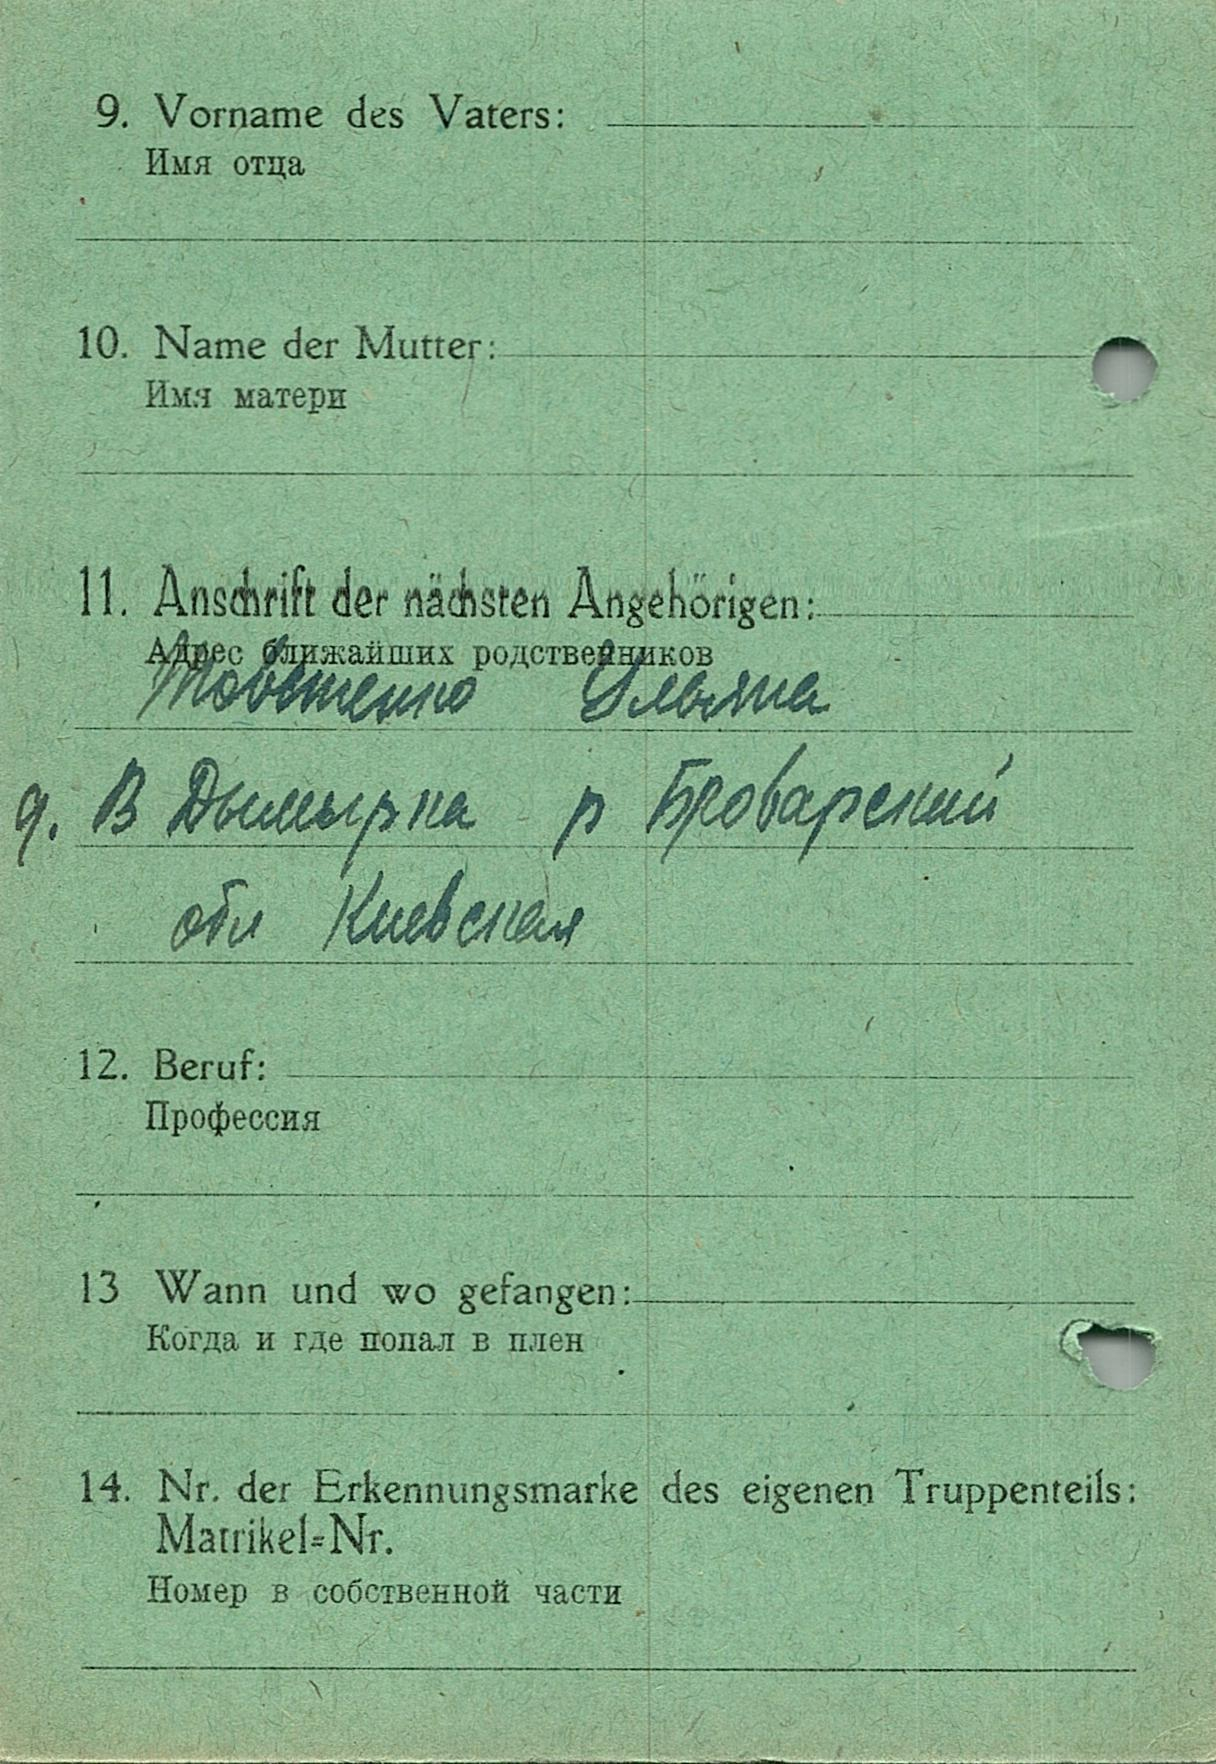 9. Vorname des Vaters:
Имя отца
10. Name der Mutter:
Имя матери
11. Anschrift der nächsten Angehörigen:
Адрес ближайших родственников
Ульяна
д. В Дымырка р Броварский
обл Киевская
12. Beruf:
Профессия
13 Wann und wo gefangen:
Когда и где попал в плен
14. Nr. der Erkennungsmarke des eigenen Truppenteils:
Matrikel=Nr.
Номер в собственной части